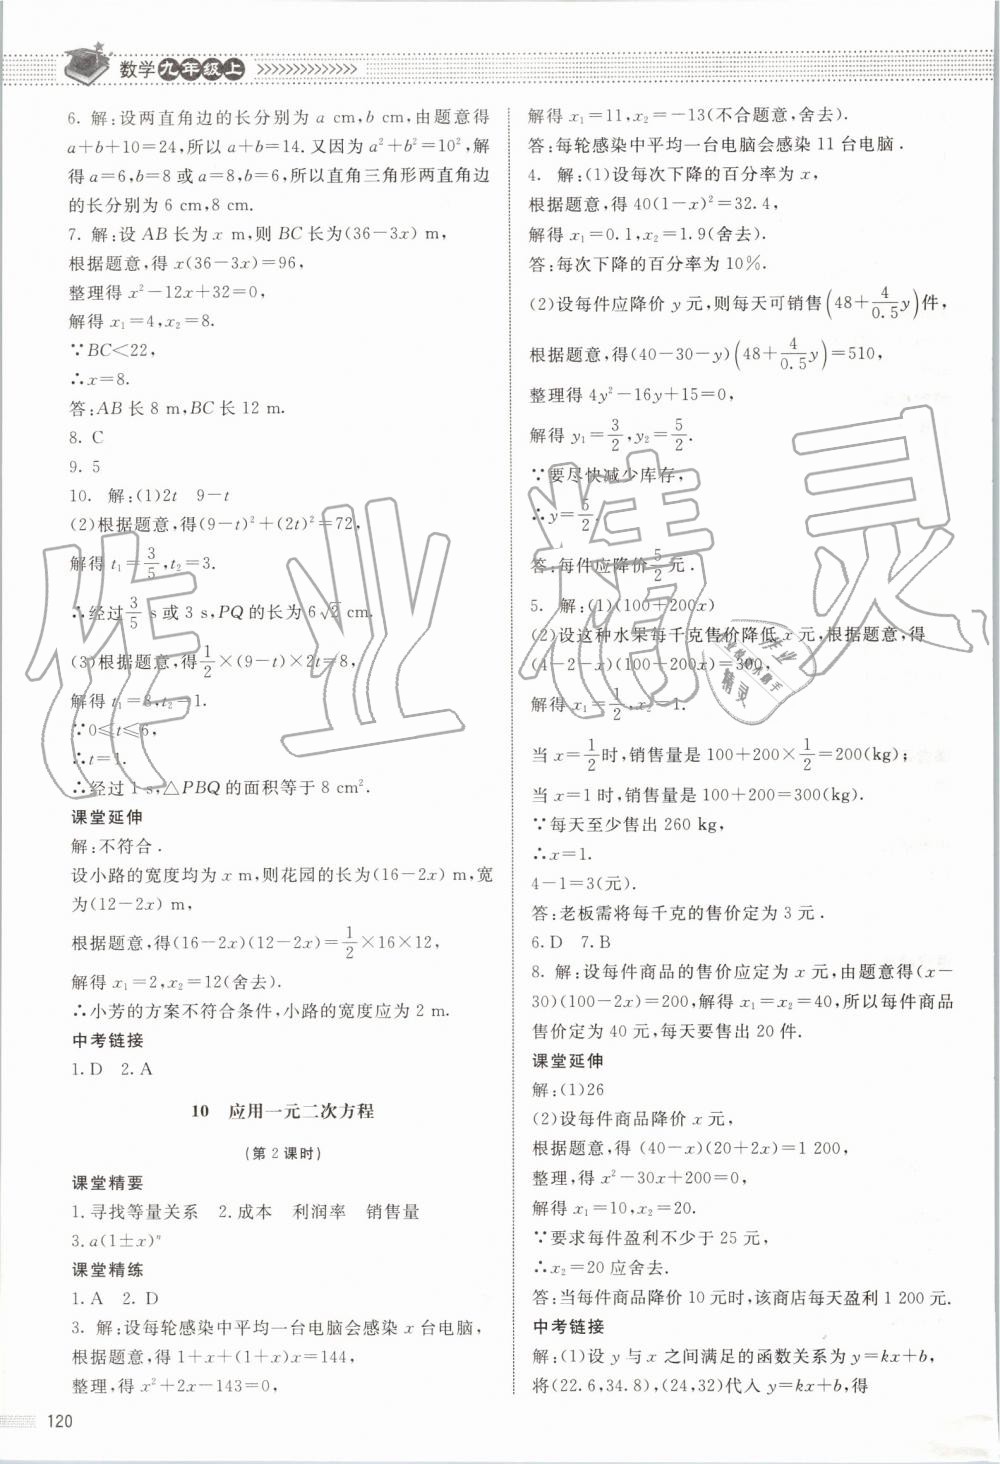 数学九年级上
6. 解:设两直角边的长分别为 a cm,b cm,由题意得
a+b+10=24,所以 a+b=14. 又因为 a²+b²=10²,解
得 a=6,b=8 或 a=8,b=6,所以直角三角形两直角边
的长分别为 6 cm,8 cm.
7. 解:设 AB 长为 x m,则 BC 长为(36-3x) m,
根据题意,得 x(36-3x)=96,
整理得 x²-12x+32=0,
解得 x₁=4,x₂=8.
∵BC<22,
∴x=8.
答:AB 长 8 m,BC 长 12 m.
8. C
9. 5
10. 解:(1)2t 9-t
(2)根据题意,得(9-t)²+(2t)²=72,
解得 t₁=3/5,t₂=3.
∴经过3/5 s 或 3 s,PQ 的长为 6√2 cm.
(3)根据题意,得1/2×(9-t)×2t=8,
解得 t₁=8,t₂=1.
∵0≤t≤6,
∴t=1.
∴经过 1 s,△PBQ 的面积等于 8 cm².
课堂延伸
解:不符合.
设小路的宽度均为 x m,则花园的长为(16-2x) m,宽
为(12-2x) m,
根据题意,得(16-2x)(12-2x)=1/2×16×12,
解得 x₁=2,x₂=12(舍去).
∴小芳的方案不符合条件,小路的宽度应为 2 m.
中考链接
1. D 2. A
10 应用一元二次方程
(第 2 课时)
课堂精要
1. 寻找等量关系 2. 成本 利润率 销售量
3. a(1±x)ⁿ
课堂精练
1. A 2. D
3. 解:设每轮感染中平均一台电脑会感染 x 台电脑,
根据题意,得 1+x+(1+x)x=144,
整理,得 x²+2x-143=0,
120
解得 x₁=11,x₂=-13(不合题意,舍去).
答:每轮感染中平均一台电脑会感染 11 台电脑.
4. 解:(1)设每次下降的百分率为 x,
根据题意,得 40(1-x)²=32.4,
解得 x₁=0.1,x₂=1.9(舍去).
答:每次下降的百分率为 10%.
(2)设每件应降价 y 元,则每天可销售(48+4/0.5y)件,
根据题意,得(40-30-y)(48+4/0.5y)=510,
整理得 4y²-16y+15=0,
解得 y₁=3/2,y₂=5/2.
∵要尽快减少库存,
∴y=5/2.
答:每件应降价5/2元.
5. 解:(1)(100+200x)
(2)设这种水果每千克售价降低 x 元,根据题意,得
(4-2-x)(100+200x)=300,
解得 x₁=1/2,x₂=1.
当 x=1/2时,销售量是 100+200×1/2=200(kg);
当 x=1 时,销售量是 100+200=300(kg).
∵每天至少售出 260 kg,
∴x=1.
4-1=3(元).
答:老板需将每千克的售价定为 3 元.
6. D 7. B
8. 解:设每件商品的售价应定为 x 元,由题意得(x-
30)(100-2x)=200,解得 x₁=x₂=40,所以每件商品
售价定为 40 元,每天要售出 20 件.
课堂延伸
解:(1)26
(2)设每件商品降价 x 元,
根据题意,得 (40-x)(20+2x)=1 200,
整理,得 x²-30x+200=0,
解得 x₁=10,x₂=20.
∵要求每件盈利不少于 25 元,
∴x₂=20 应舍去.
答:当每件商品降价 10 元时,该商店每天盈利 1 200 元.
中考链接
解:(1)设 y 与 x 之间满足的函数关系为 y=kx+b,
将(22.6,34.8),(24,32)代入 y=kx+b,得
作业精灵
作业
精灵